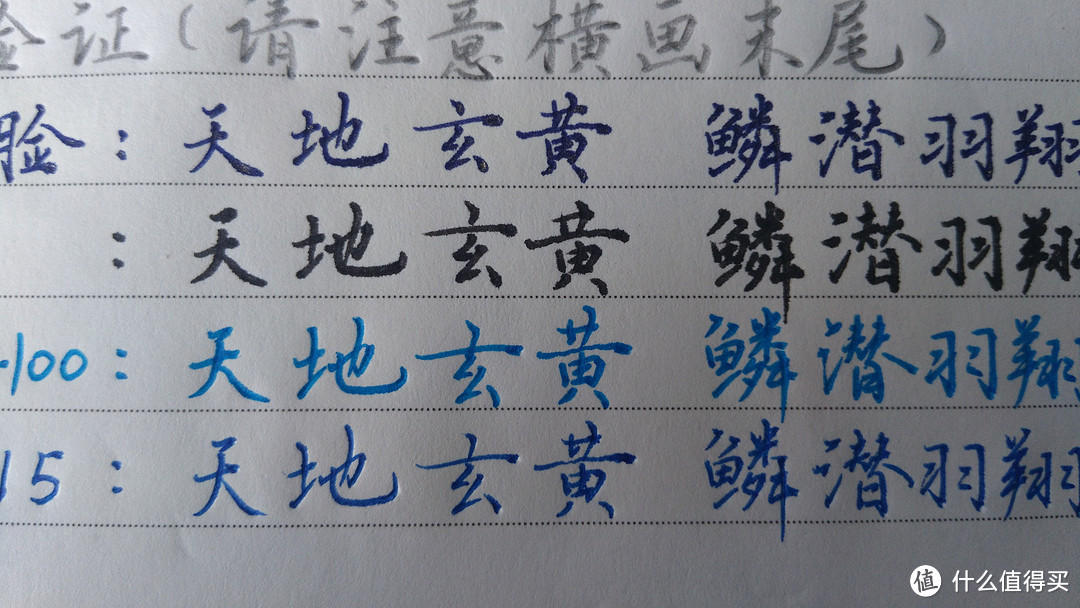 验证（请注意横画末尾）
脸：天地玄黄 鳞潜羽翔
：天地玄黄 鳞潜羽翔
-100：天地玄黄 鳞潜羽翔
15：天地玄黄 鳞潜羽翔
值 什么值得买